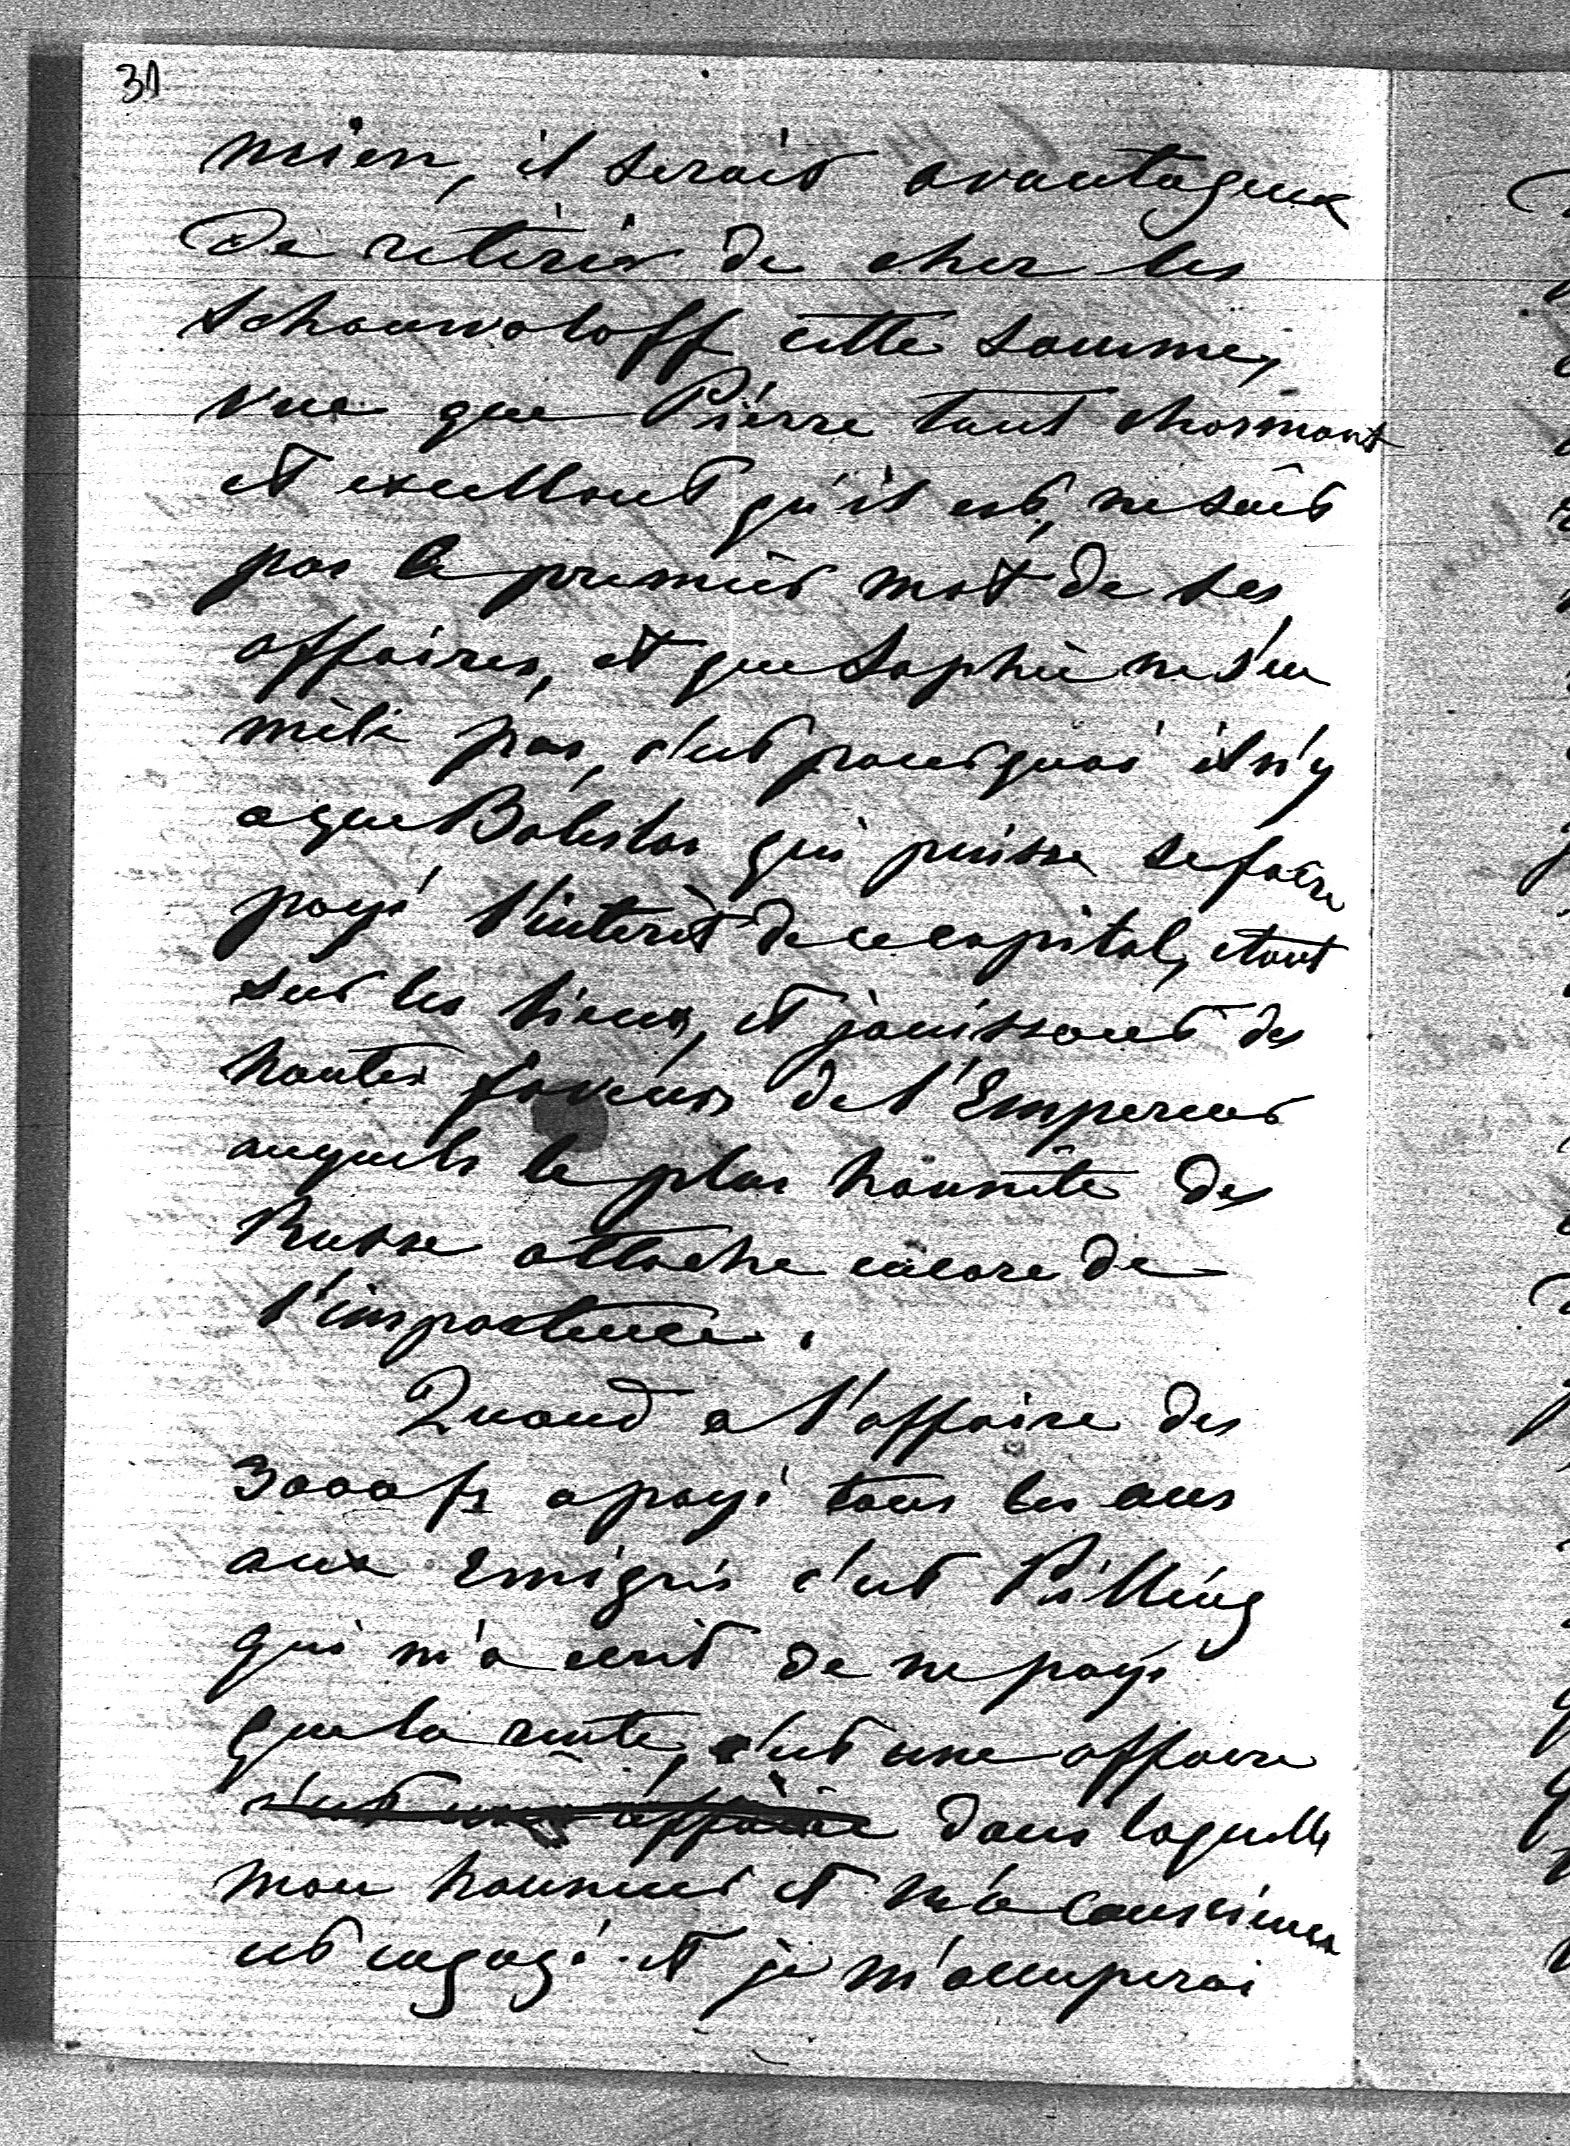 31
mien, il serait avantageux
de retirer de cher les
Schouwaloff cette somme,
vue que Pierre tout charmant
et excellent qu'il est, ne sait
pas le premier mot de ses
affaires, et que Sophie ne s'en
mêle pas, c'est pourquoi il n'y
a que Boleslas qui puisse se faire
payé l'interêt de ce capital, étant
sur les lieux, et jouissant des
hautes faveurs de l'Empereur
auquels le plus hounête des
Russe attache encore de
l'importence.
Quand a l'affaire des
3000 fr a payé tous les ans
aux Emigrés c'est Pilling
qui m'a ecrit de ne payé
que la rente, c'est une affaire
c'est une affaire dans laquelle
mon honneur et ma conscience
est engagé et je m'occuperai